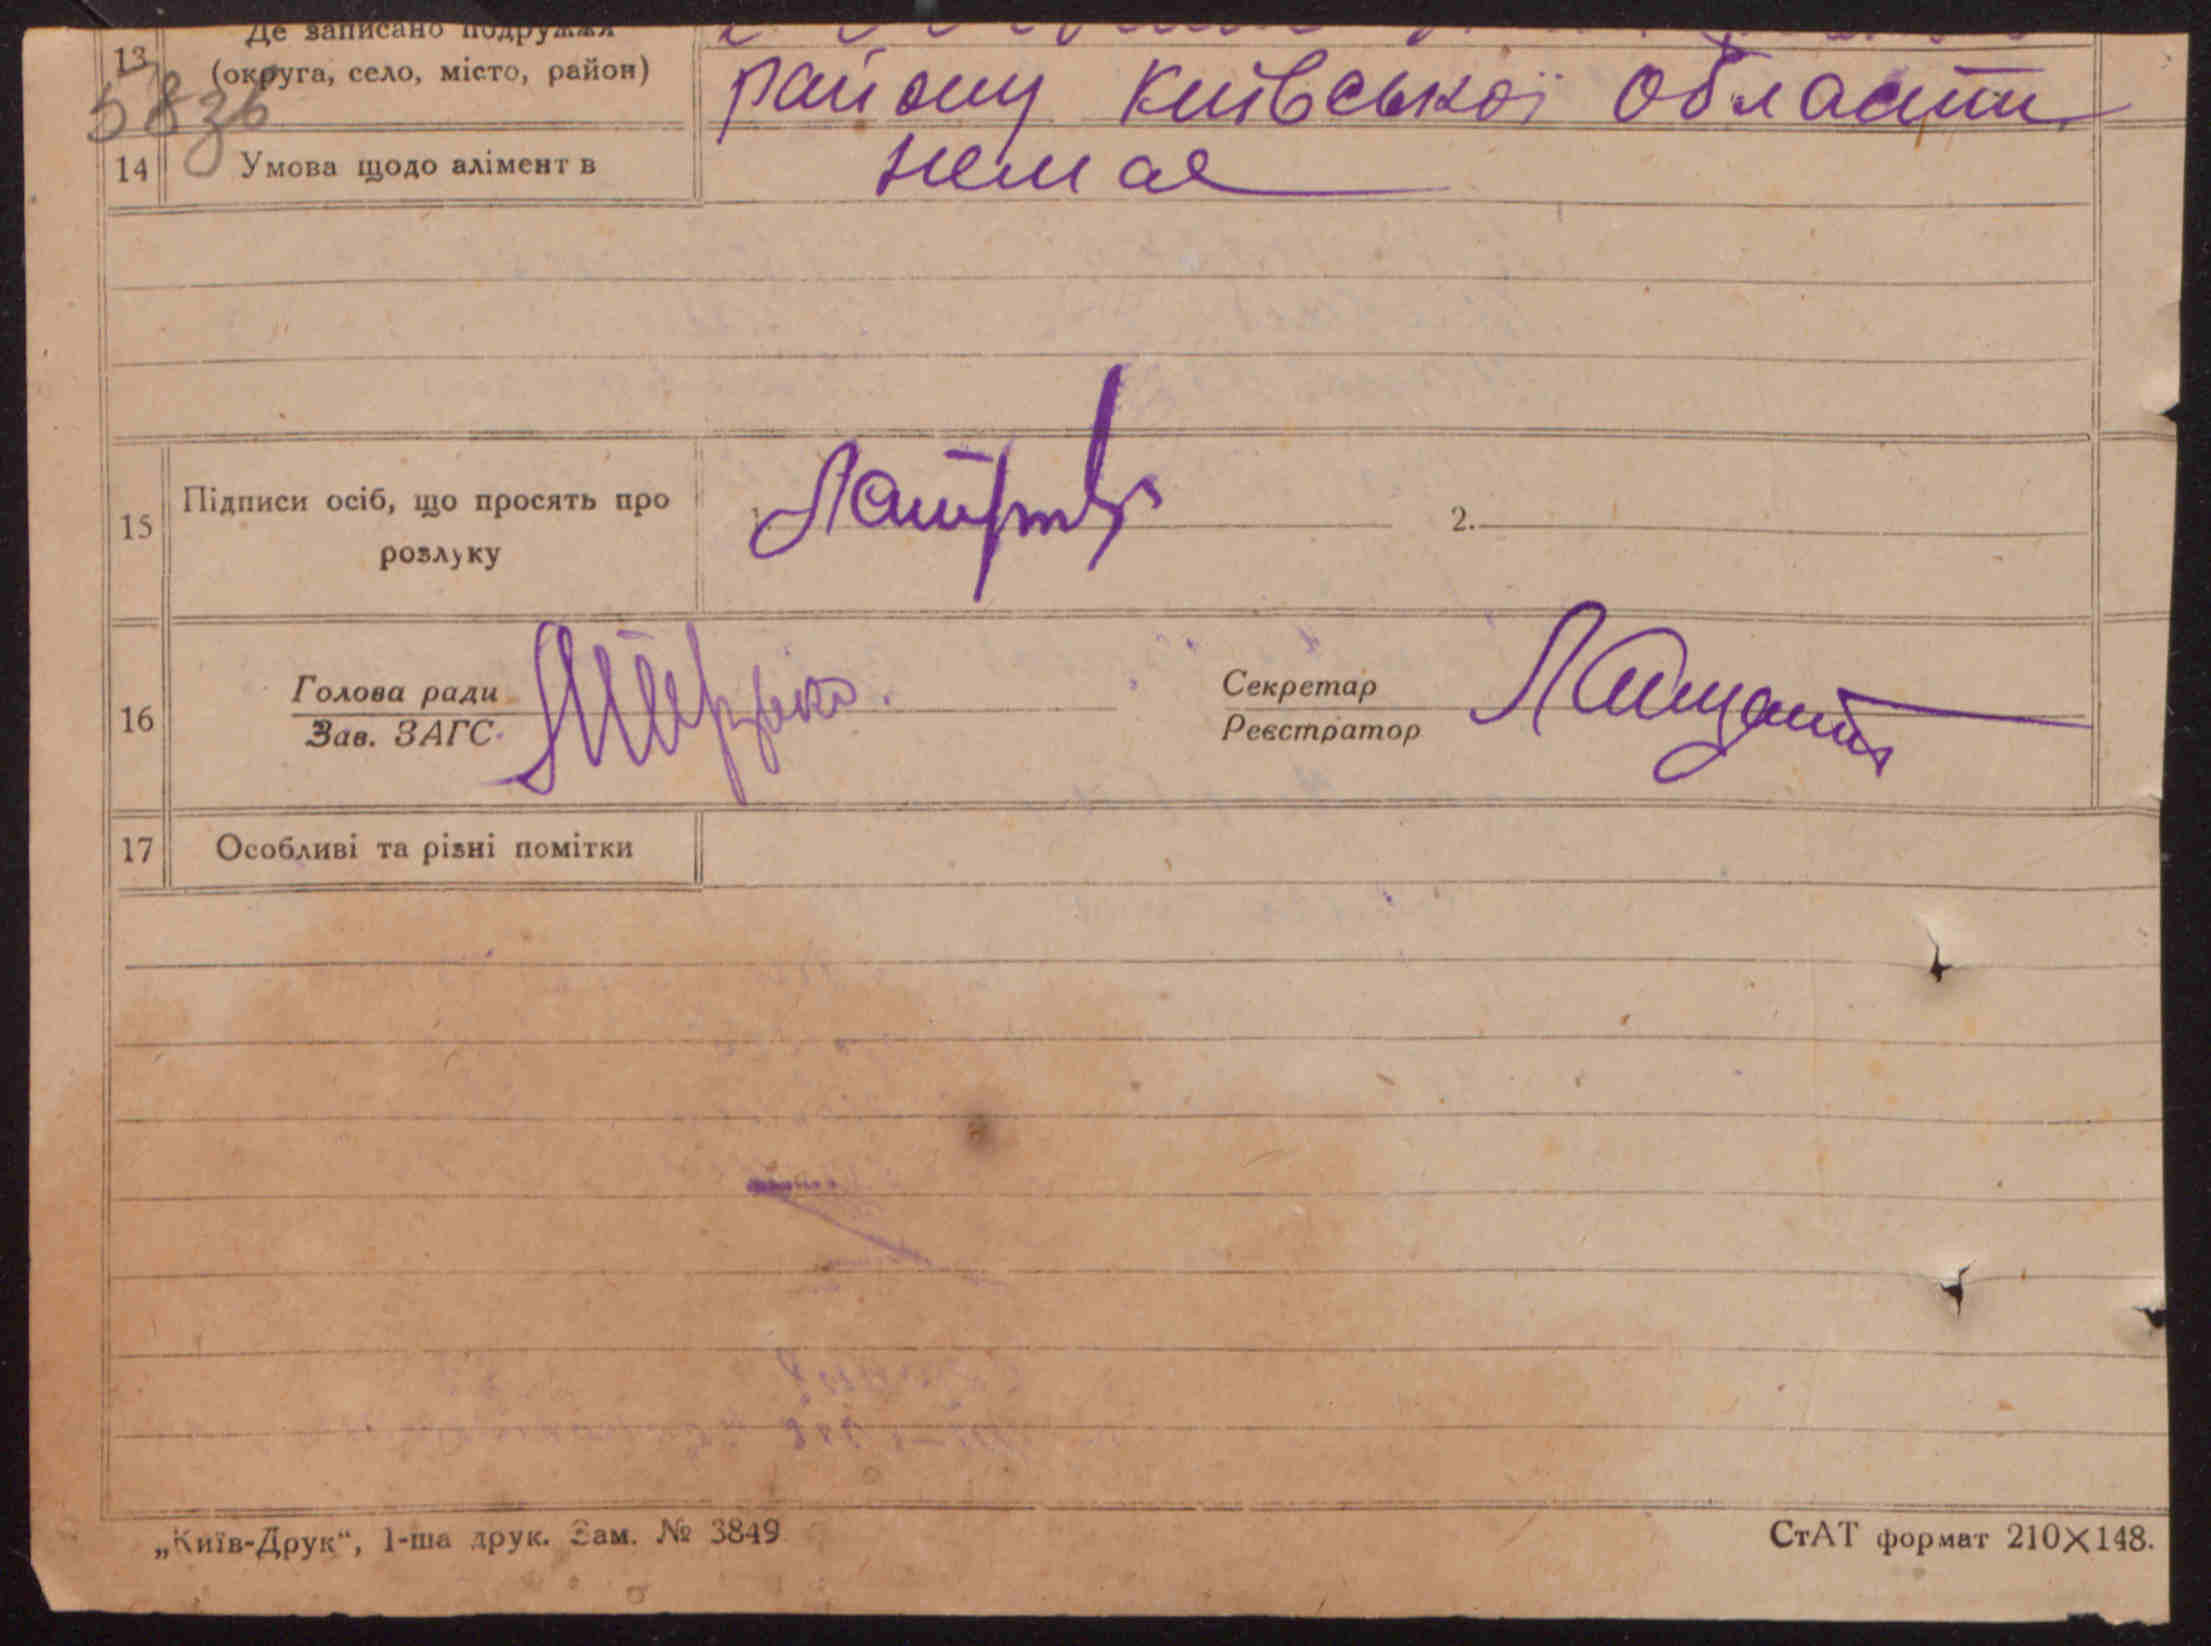 Де записано подружжя
13 (округа, село, місто, район)
району Київської области
58 зв
14 Умова щодо алімент в немає
15 Підписи осіб, що просять про розлуку 2.
16 Голова ради Секретар
Зав. ЗАГС. Реєстратор
17 Особливі та різні помітки
„Київ-Друк“, 1-ша друк. Зам. № 3849 СтАТ формат 210×148.